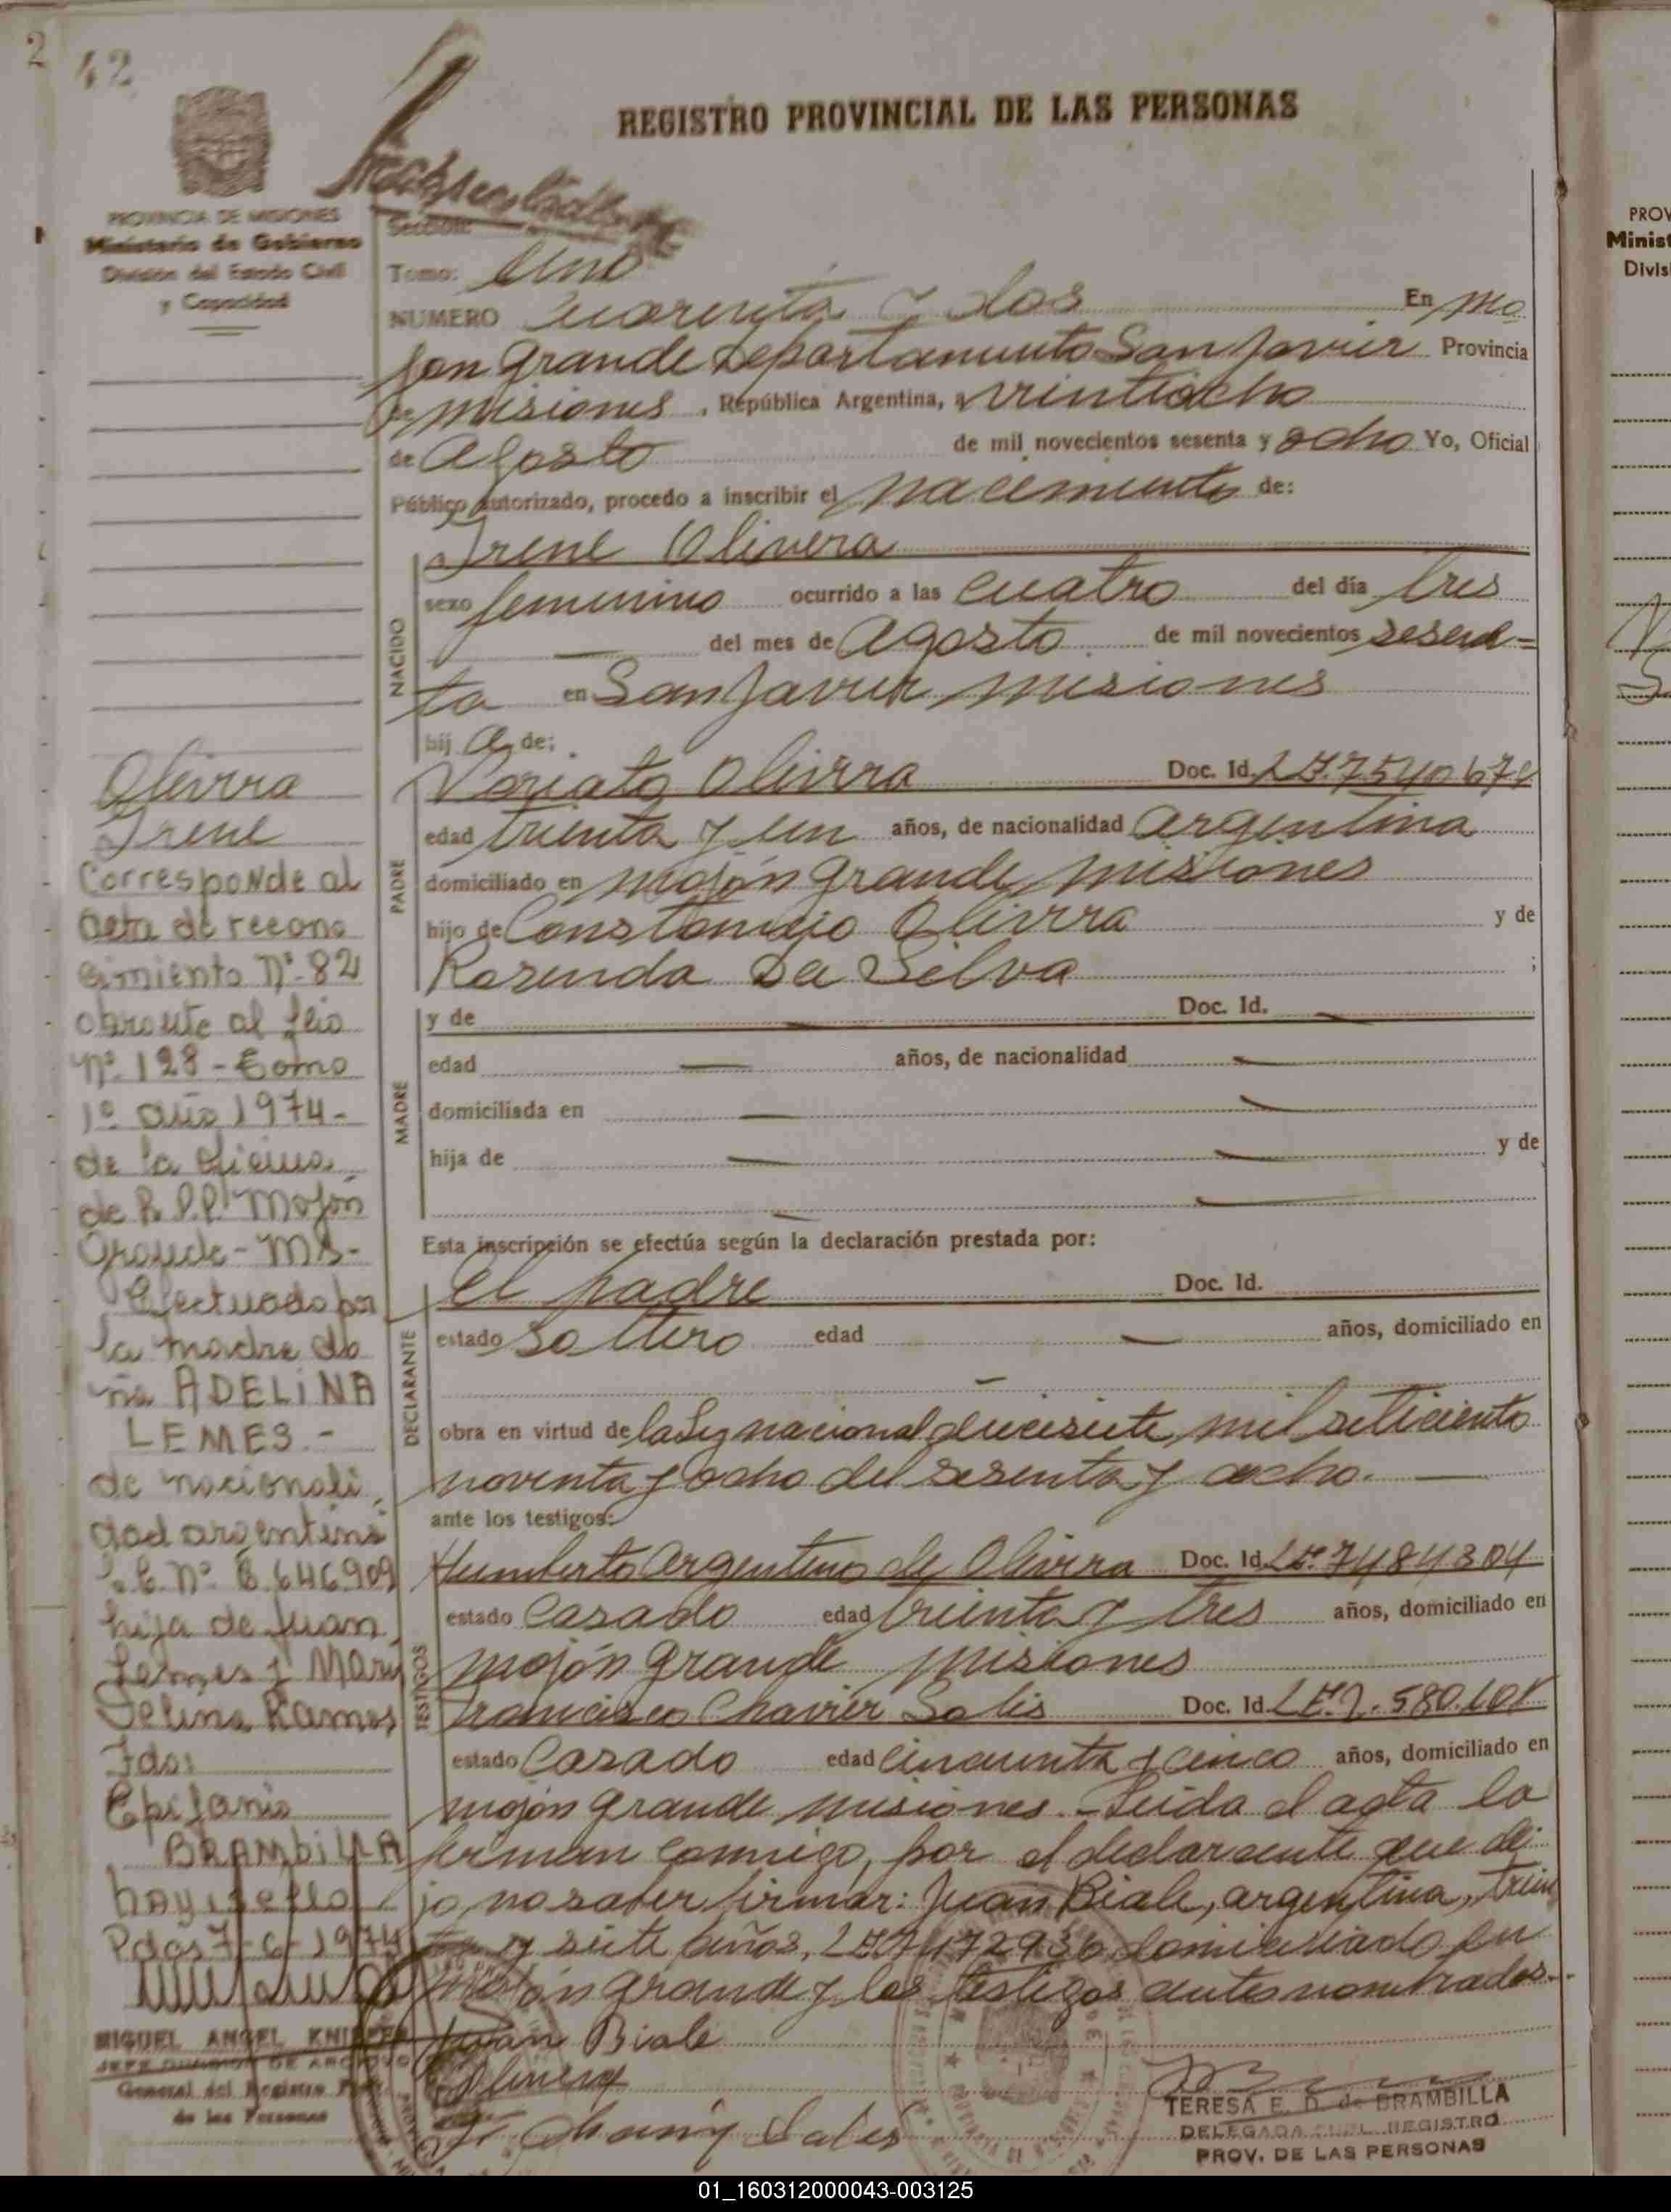 2
42
REGISTRO PROVINCIAL DE LAS PERSONAS
PROVINCIA DE MISIONES
Ministerio de Gobierno
División del Estado Civil
y Capacidad
Sección:
Tomo: Uno
NUMERO Cuarenta y dos En mo
jon grande Departamento San Javier Provincia
de misiones, República Argentina, a veintiocho
de Agosto de mil novecientos sesenta y ocho Yo, Oficial
Público autorizado, procedo a inscribir el nacimiento de:
Irene Olivera
NACIDO
sexo femenino ocurrido a las cuatro del día tres
del mes de Agosto de mil novecientos sesen=
ta en San Javier misiones
hij a de:
PADRE
Olivera Doc. Id.
edad treinta y un años, de nacionalidad argentina
domiciliado en mojón grande misiones
hijo de Olivera y de
Rosenda Da Silva ;
MADRE
y de Doc. Id.
edad años, de nacionalidad
domiciliada en
hija de y de
Esta inscripción se efectúa según la declaración prestada por:
DECLARANTE
el padre Doc. Id.
estado soltero edad años, domiciliado en
obra en virtud de la Ley nacional diecisiete mil seticiento
noventa y ocho del sesenta y ocho.
ante los testigos:
TESTIGOS
Humberto argentino de Olivera Doc. Id. LE. 7484304
estado Casado edad treinta y tres años, domiciliado en
mojón grande misiones
Francisco Chavier Solis Doc. Id.
estado Casado edad cincuenta y cinco años, domiciliado en
mojón grande misiones. - Leida el acta la
firman conmigo, por el declarante que di
jo no saber firmar: Juan Biale, argentina, trein
ta y siete años, domiciliado en
mojón grande y los testigos antes nombrados.-
Juan Biale
Olivera
TERESA E. D. de BRAMBILLA
DELEGADA REGISTRO
PROV. DE LAS PERSONAS
Olivera
Irene
Corresponde al
acta de recono
cimiento Nº 82
obrante al folio
Nº 128 - Tomo
1º año 1974 -
de la oficina
de R.P.P. Mojón
Grande - MS -
Efectuado por
la madre do
ña ADELINA
LEMES. -
de nacionali
dad argentina
hija de Juan
Lemes y Mari
Ramos
Fdo:
Epifania
BRAMBILLA
hay sello
Pdas 7-6-1974
MIGUEL ANGEL
JEFE DIVISION DE ARCHIVO
General del Registro
de las Personas
PROV
Minist
Divis
01_160312000043-003125